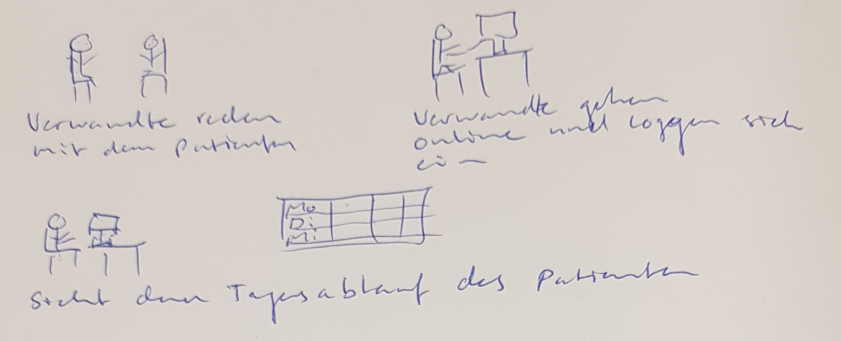 Verwandte reden
mit dem Patienten
Verwandte gehen
online und loggen sich
ein
Mo
Di
Mi
Sieht den Tagesablauf des Patienten